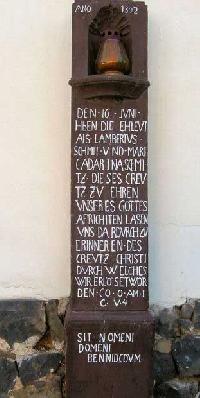 ANO 1802
DEN 10 JUNI
HBEN DIE EHLEUT
ALS LAMBERTUS
SCHMIT VND MARI
CADARINA SCHMI
TZ DIESES CREU
TZ ZU EHREN
UNSERES GOTTES
AUFRICHTEN LASEN
UNS DARDURCH ZU
ERINNEREN DES
CREUTZ CHRISTI
DURCH WELCHES
WIR ERLÖSET WOR
DEN CO O AM I
C V4
SIT NOMENI
DOMENI
BENNIDCDVM